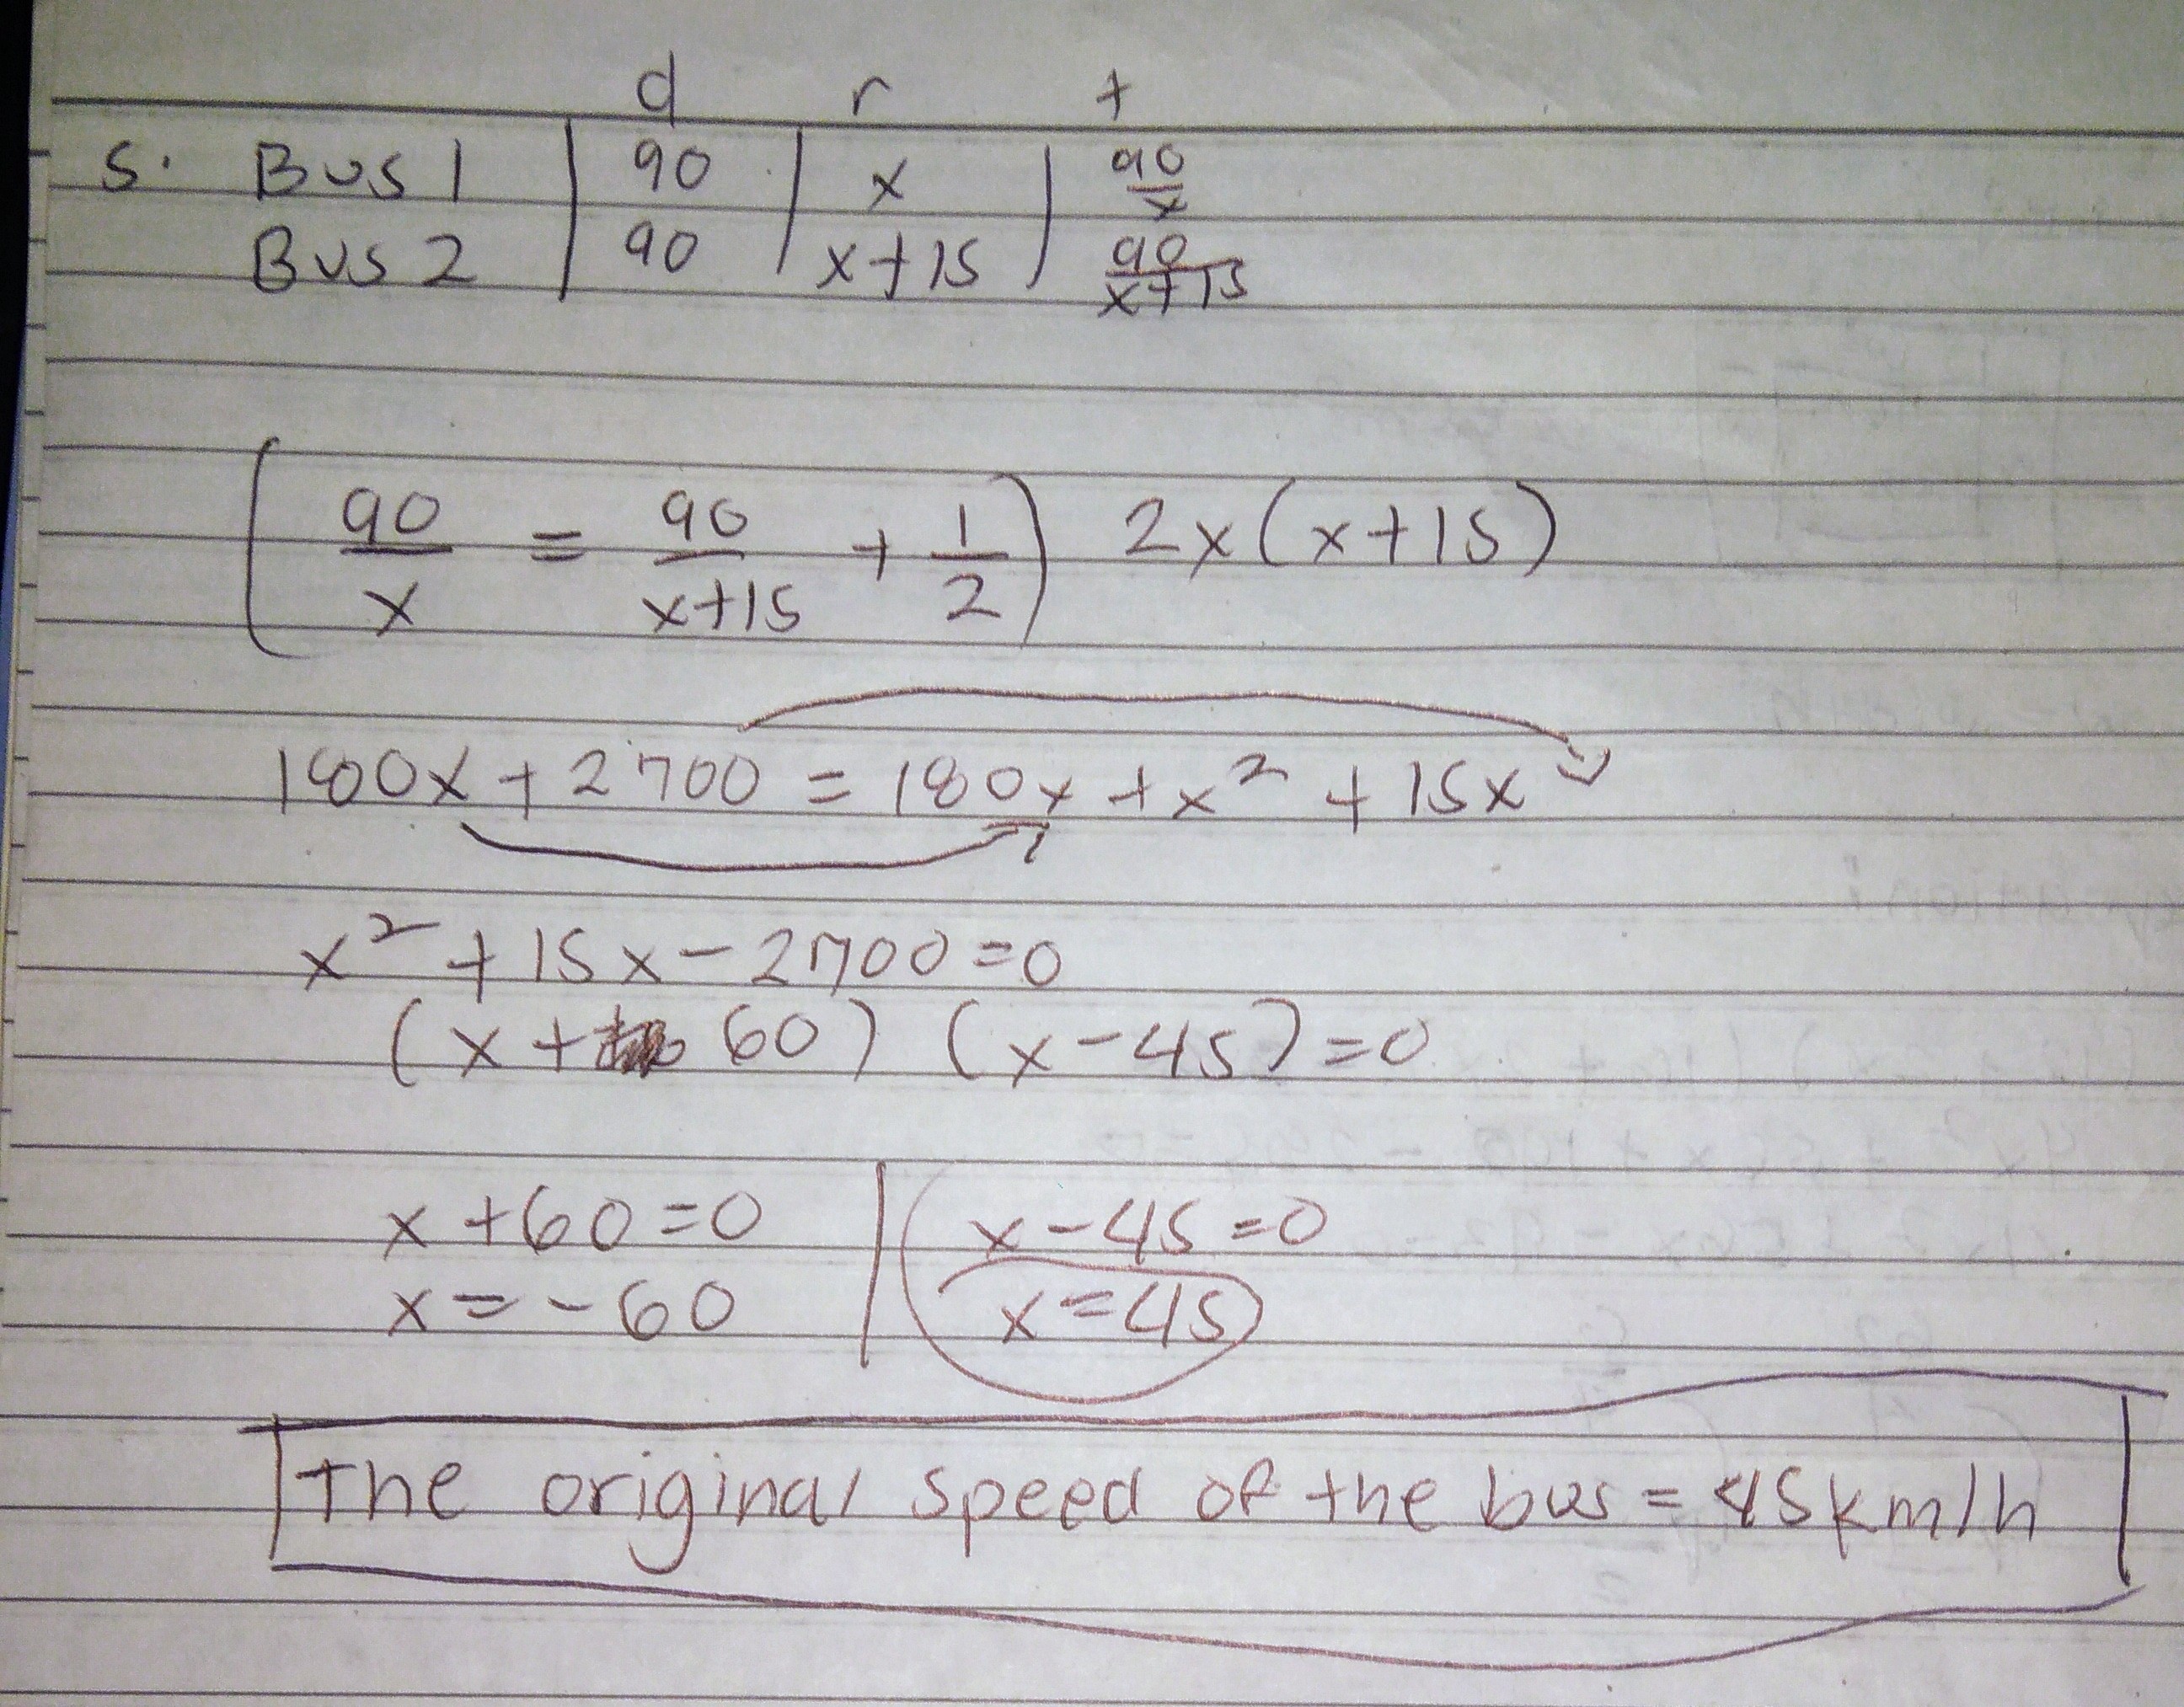 d r t
5. Bus 1 | 90 | x | 90/x
Bus 2 | 90 | x+15 | 90/x+15
(90/x = 90/x+15 + 1/2) 2x(x+15)
180x + 2700 = 180x + x² + 15x
x² + 15x - 2700 = 0
(x + 60) (x - 45) = 0
x + 60 = 0 | x - 45 = 0
x = - 60 | x = 45
The original speed of the bus = 45km/h